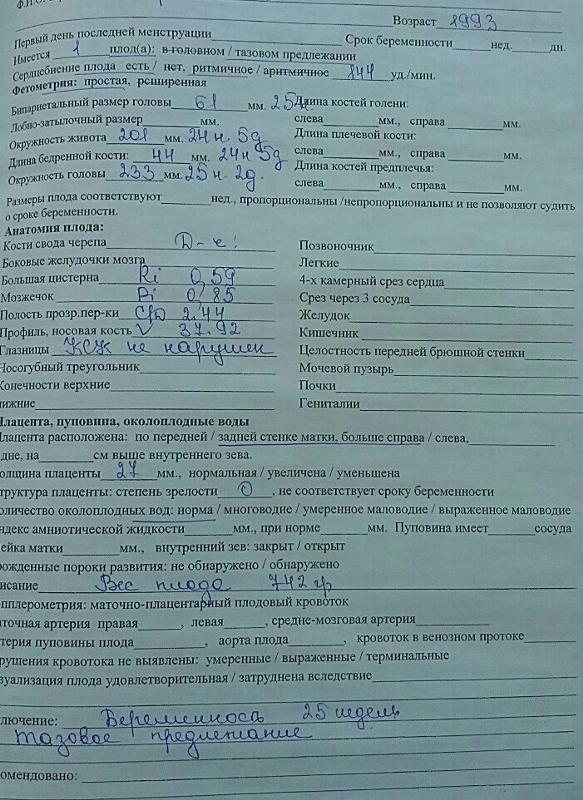 Ф.И.О.
Возраст 1993
Первый день последней менструации Срок беременности нед. дн.
Имеется 1 плод(а): в головном / тазовом предлежании
Сердцебиение плода есть / нет, ритмичное / аритмичное 144 уд./мин.
Фетометрия: простая, расширенная
Бипариетальный размер головы 61 мм. 25 н Длина костей голени:
Лобно-затылочный размер мм. слева мм., справа мм.
Окружность живота 201 мм. 24 н. 5д Длина плечевой кости:
Длина бедренной кости: 44 мм. 24н 5д слева мм., справа мм.
Окружность головы 233 мм. 25 н. 2д. Длина костей предплечья:
слева мм., справа мм.
Размеры плода соответствуют нед., пропорциональны /непропорциональны и не позволяют судить
о сроке беременности.
Анатомия плода:
Кости свода черепа Позвоночник
Боковые желудочки мозга Легкие
Большая цистерна Ri 0,59 4-х камерный срез сердца
Мозжечок Pi 0,85 Срез через 3 сосуда
Полость прозр.пер-ки С/Д 2.44 Желудок
Профиль, носовая кость V 37.92 Кишечник
Глазницы КСК не нарушен Целостность передней брюшной стенки
Носогубный треугольник Мочевой пузырь
Конечности верхние Почки
нижние Гениталии
Плацента, пуповина, околоплодные воды
Плацента расположена: по передней / задней стенке матки, больше справа / слева,
дне, на см выше внутреннего зева.
олщина плаценты 27 мм., нормальная / увеличена / уменьшена
труктура плаценты: степень зрелости 0, не соответствует сроку беременности
оличество околоплодных вод: норма / многоводие / умеренное маловодие / выраженное маловодие
ндекс амниотической жидкости мм., при норме мм. Пуповина имеет сосуда
ейка матки мм., внутренний зев: закрыт / открыт
рожденные пороки развития: не обнаружено / обнаружено
исание Вес плода 742 гр
опплерометрия: маточно-плацентарный плодовый кровоток
аточная артерия правая, левая, средне-мозговая артерия
терия пуповины плода, аорта плода, кровоток в венозном протоке
рушения кровотока не выявлены: умеренные / выраженные / терминальные
зуализация плода удовлетворительная / затруднена вследствие
лючение: Беременность 25 недель
тазовое предлежание
омендовано: